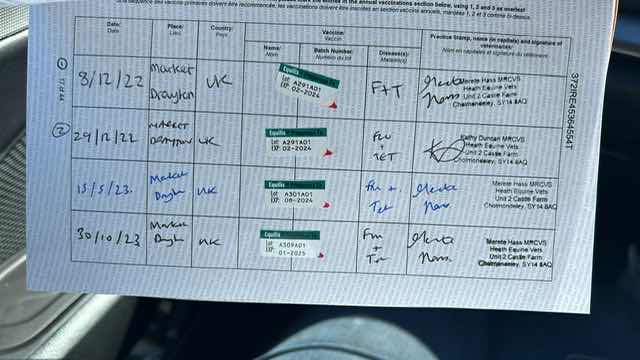 Date:
Date
Place:
Lieu
Country:
Pays
Vaccine:
Vaccin
Name:
Nom
Batch Number:
Numéro du lot
Disease(s):
Maladie(s)
Practice Stamp, name (in capitals) and signature of
veterinarian:
Nom en capitales et signature du vétérinaire
1
8/12/22
Market
Drayton
UK
Equilis
Lot A291A01
EXP 02-2024
F+T
Merete Hass MRCVS
Heath Equine Vets
Unit 2 Castle Farm
Cholmondeley, SY14 8AQ
2
29/12/22
MARKET
DRAYTON
UK
Equilis
Lot A291A01
EXP 02-2024
FLU
+
TET
Kathy Duncan MRCVS
Heath Equine Vets
Unit 2 Castle Farm
Cholmondeley, SY14 8AQ
15/5/23.
Market
UK
Equilis
Lot A301A01
EXP 06-2024
Flu +
Tet
Merete Hass MRCVS
Heath Equine Vets
Unit 2 Castle Farm
Cholmondeley, SY14 8AQ
30/10/23
Market
UK
Equilis
Lot A309A01
EXP 01-2025
Flu
+
Tet
Merete Hass MRCVS
Heath Equine Vets
Unit 2 Castle Farm
Cholmondeley, SY14 8AQ